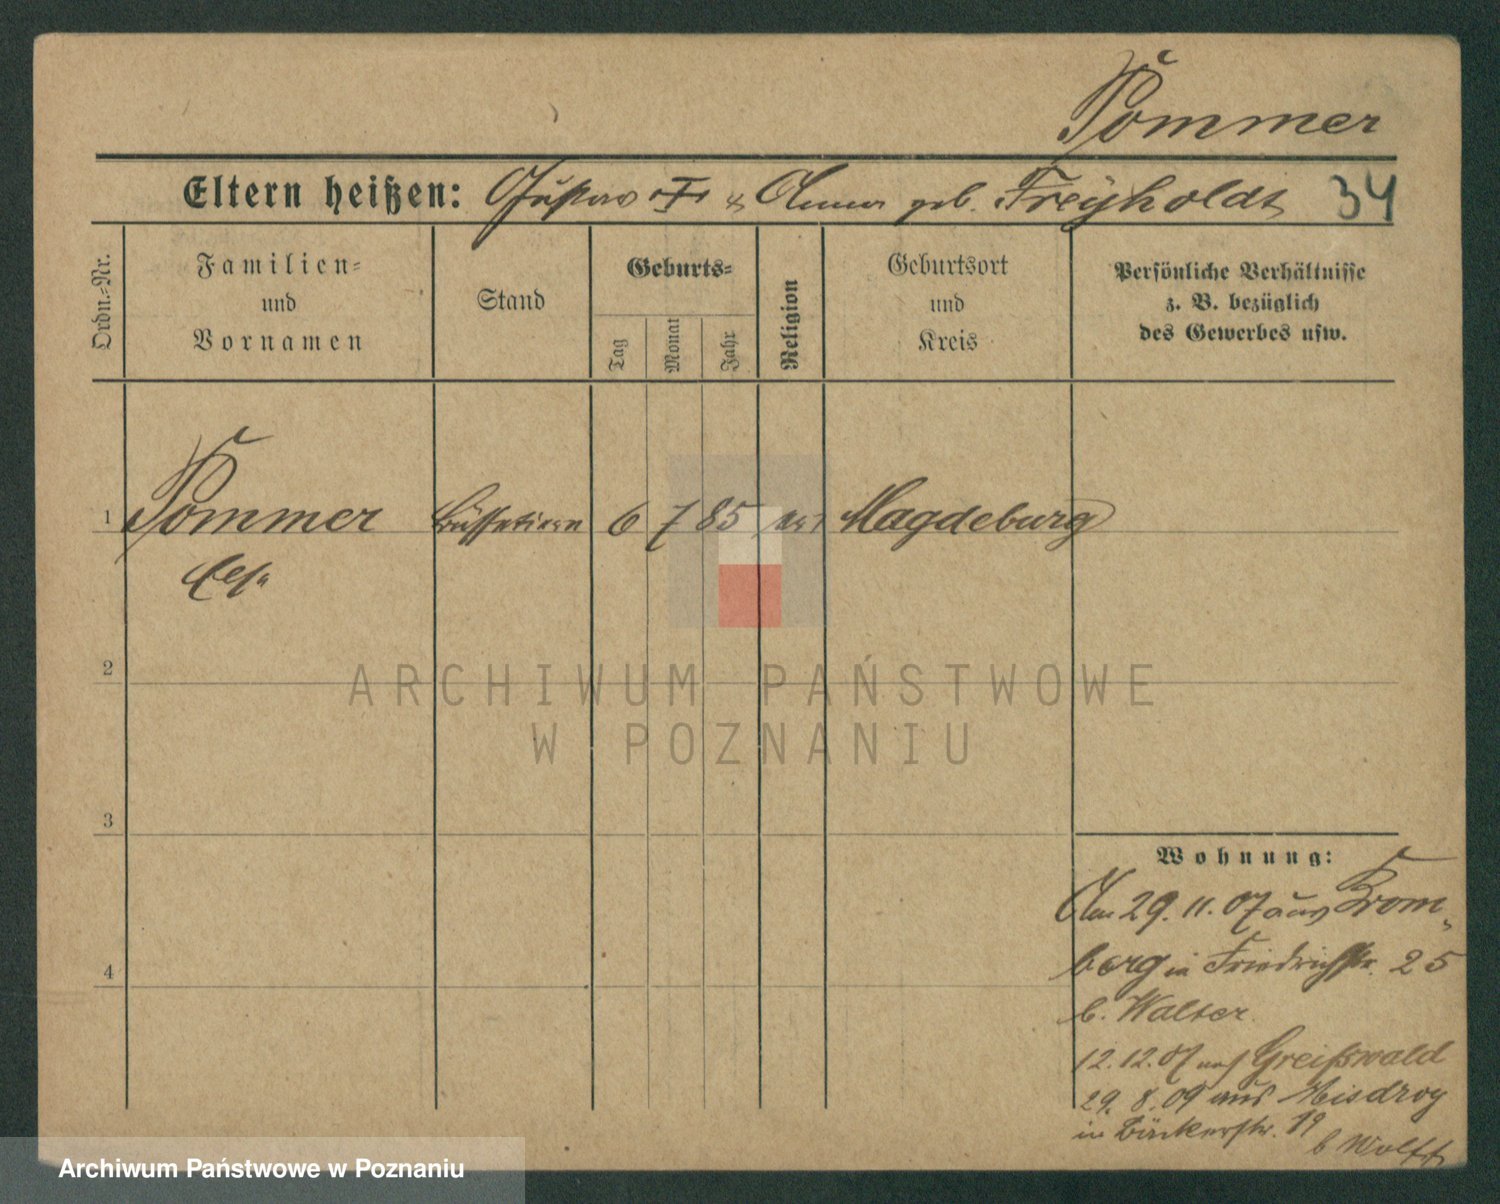 Sommer
Eltern heißen: Gustav & Anna geb. Freyholdt 34
Ordn.-Nr.
Familien-
und
Vornamen
Stand
Geburts-
Tag
Monat
Jahr
Religion
Geburtsort
und
Kreis
Persönliche Verhältnisse
z. B. bezüglich
des Gewerbes usw.
1 Sommer Büffetiere 6 7 85 Magdeburg
2
3
4
ARCHIWUM PAŃSTWOWE
W POZNANIU
Wohnung:
Am 29. 11. 07 aus Brom-
berg in Friedrichstr. 25
b. Walter.
12. 12. 07 nach Greifswald
29. 8. 09 aus Misdroy
in Bäckerstr. 19
b Wolff
Archiwum Państwowe w Poznaniu